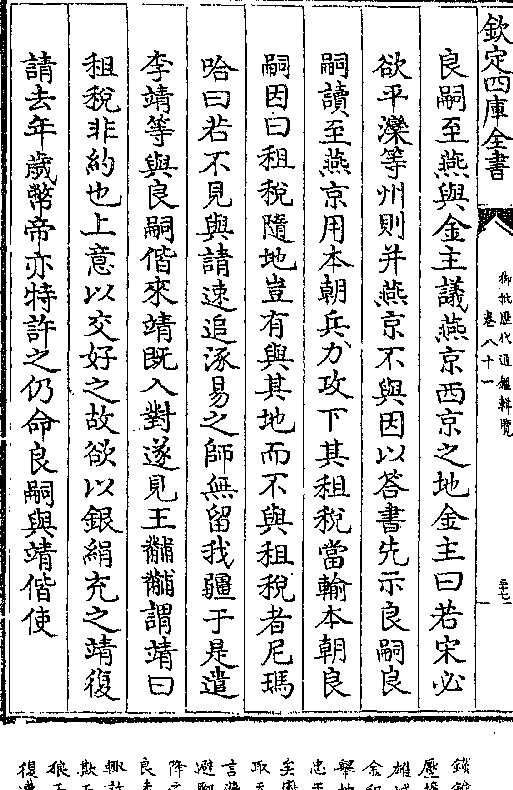 欽定四庫全書
御批歷代通鑑輯覽
卷八十一
良嗣至燕與金主議燕京西京之地金主曰若宋必
欲平灤等州則并燕京不與因以答書先示良嗣良
嗣讀至燕京用本朝兵力攻下其租稅當輸本朝良
嗣因曰租稅隨地豈有與其地而不與租稅者尼瑪
哈曰若不見與請速追涿易之師無留我疆于是遣
李靖等與良嗣偕來靖既入對遂見王黼黼謂靖曰
租稅非約也上意以交好之故欲以銀絹充之靖復
請去年歲幣帝亦特許之仍命良嗣與靖偕使